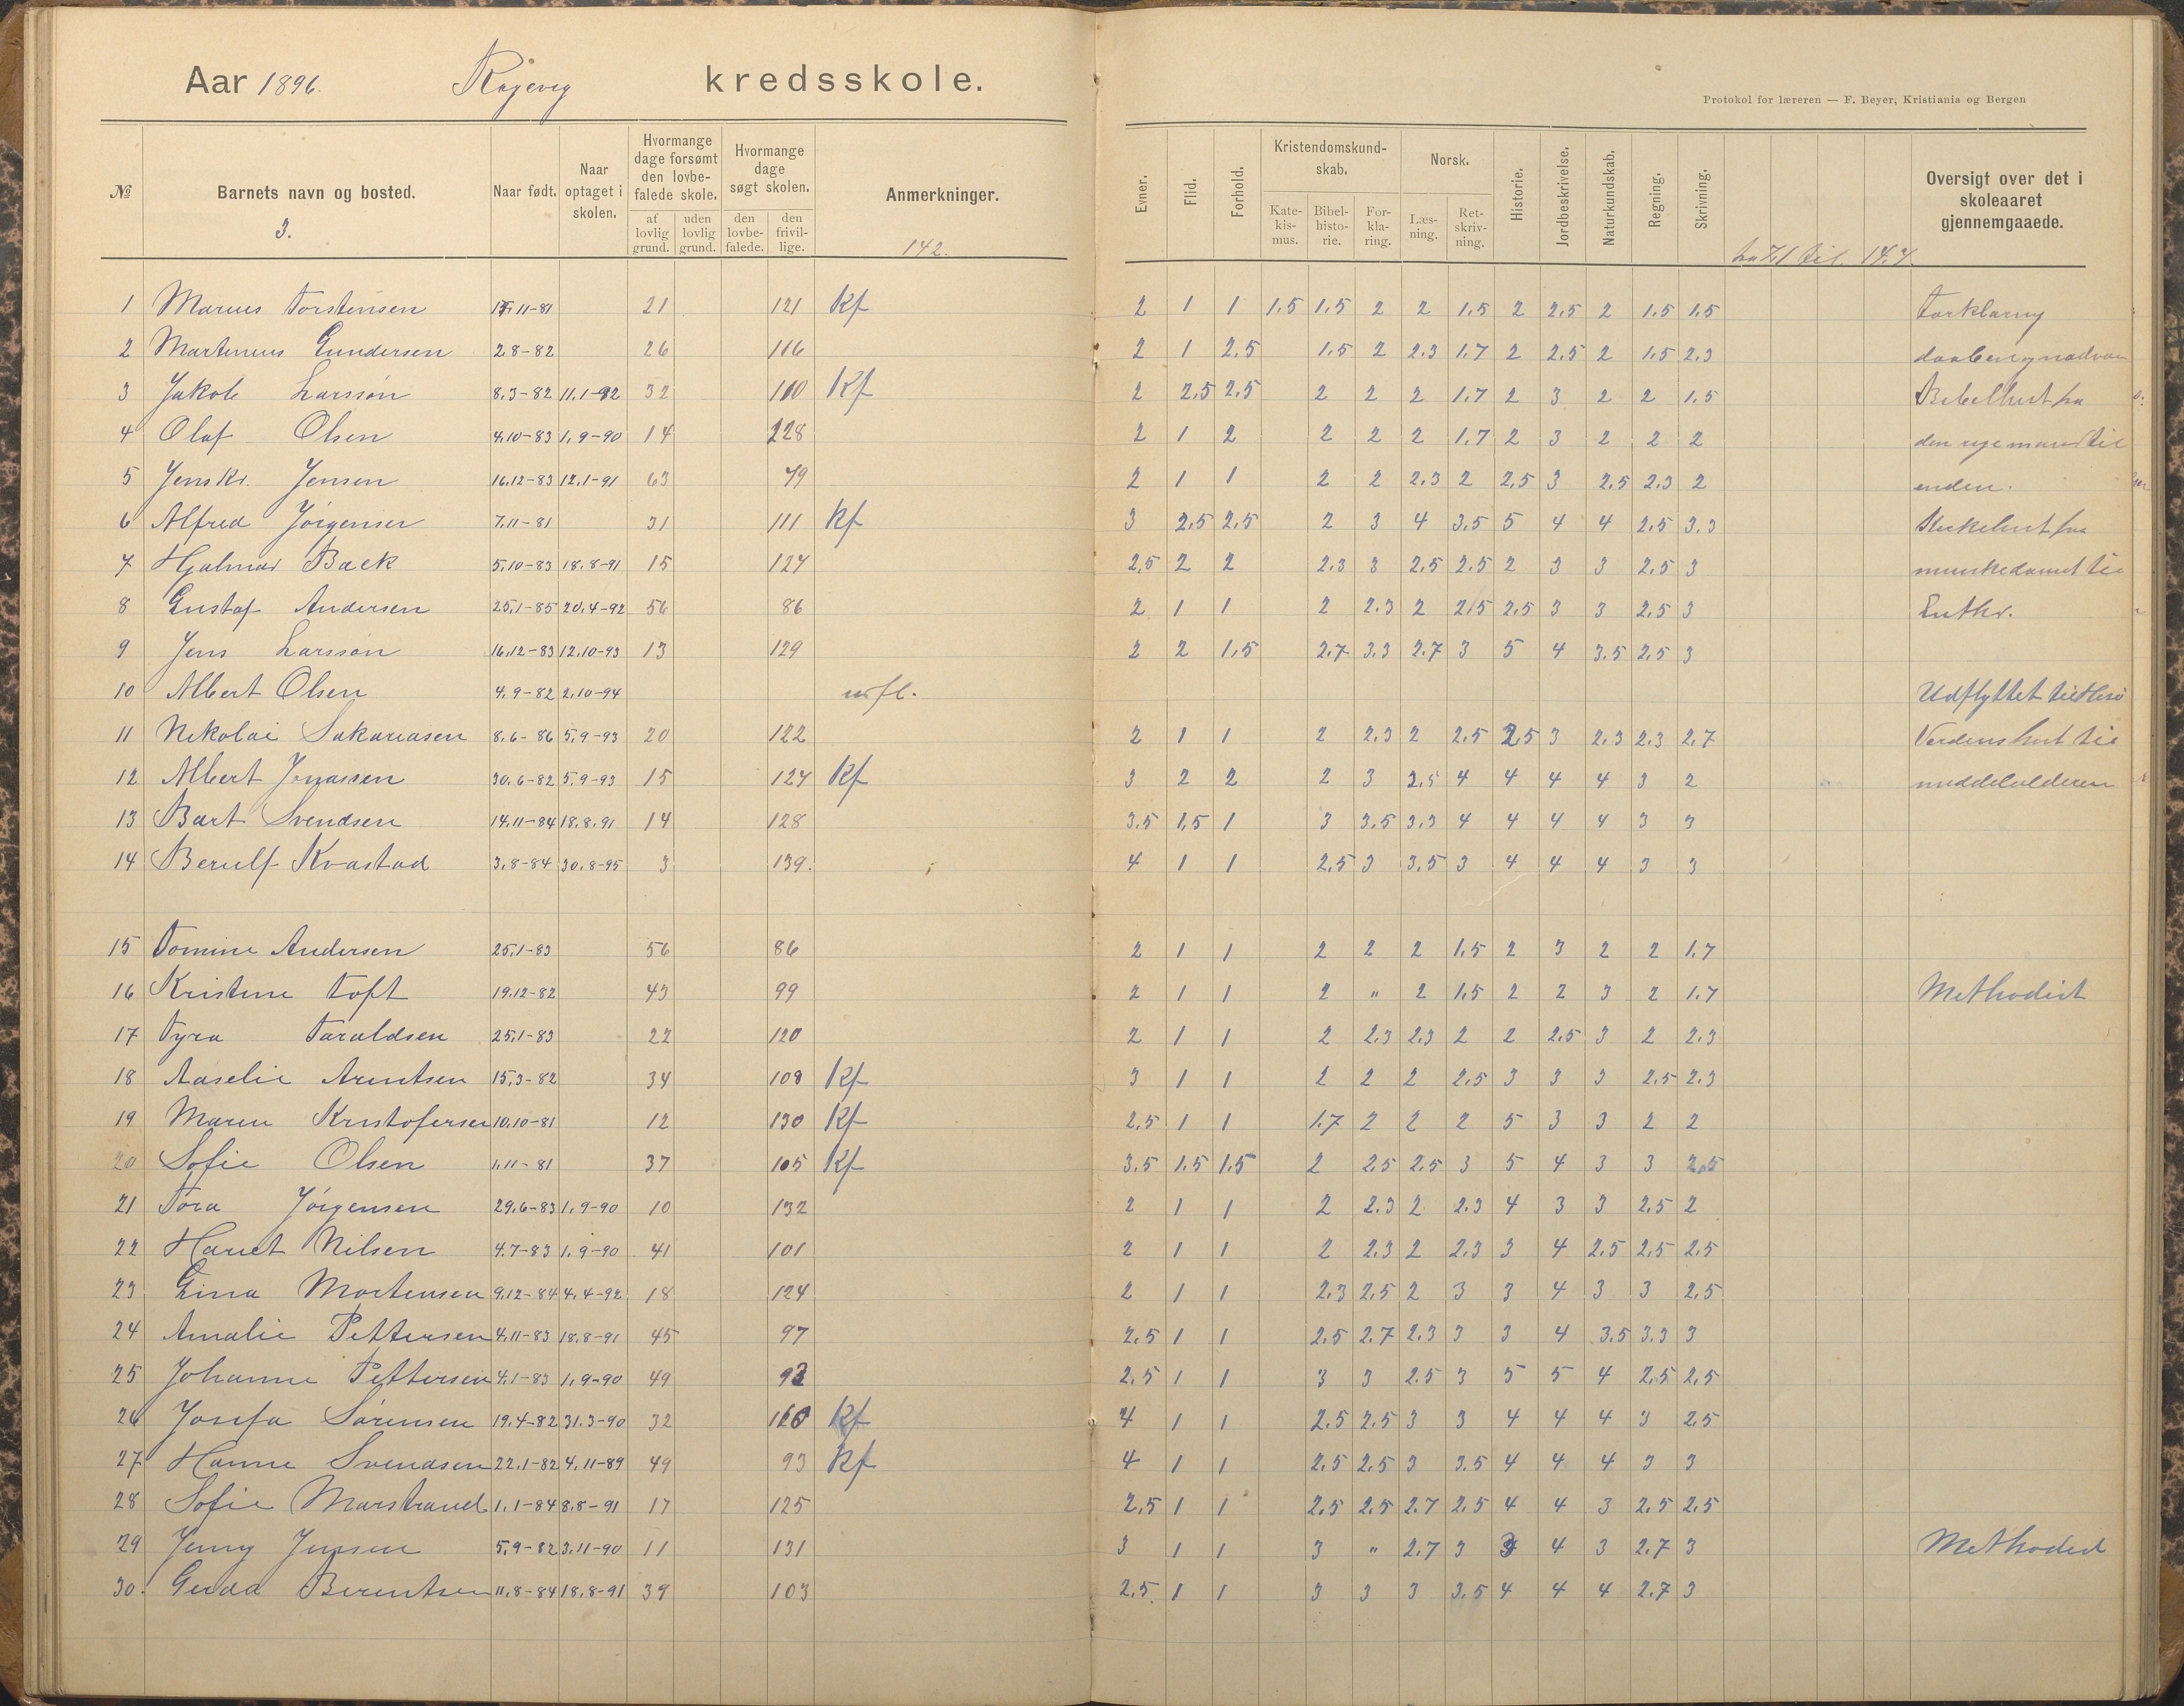 Aar 1896. Kogevig kredsskole.
Protokol for læreren — F. Beyer, Kristiania og Bergen
№ Barnets navn og bosted. Naar født. Naar optaget i skolen. Hvormange dage forsømt den lovbefalede skole. af lovlig grund. uden lovlig grund. Hvormange dage søgt skolen. den lovbefalede. den frivillige. Anmerkninger. Evner. Flid. Forhold. Kristendomskundskab. Katekismus. Bibelhistorie. Forklaring. Norsk. Læsning. Retskrivning. Historie. Jordbeskrivelse. Naturkundskab. Regning. Skrivning. Oversigt over det i skoleaaret gjennemgaaede.
3. 142. fra 7/1 til 14.7
1 Marius Torstensen 15.11-81 21 121 Kf 2 1 1 1.5 1.5 2 2 1.5 2 2.5 2 1.5 1.5 Forklaring
2 Martinius Gundersen 2.8-82 26 116 2 1 2.5 1.5 2 2.3 1.7 2 2.5 2 1.5 2.3
3 Jakob Larssøn 8.3-82 11.1-92 32 110 Kf 2 2.5 2.5 2 2 2 1.7 2 3 2 2 1.5 Bibelhist fra
4 Olaf Olsen 4.10-83 1.9-90 14 128 2 1 2 2 2 2 1.7 2 3 2 2 2 den rige mand til
5 Jens Kr. Jensen 16.12-83 12.1-91 63 79 2 1 1 2 2 2.3 2 2.5 3 2.5 2.3 2 enden.
6 Alfred Jørgensen 7.11-81 31 111 Kf 3 2.5 2.5 2 3 4 3.5 5 4 4 2.5 3.3 Kirkehist fra
7 Hjalmar Back 5.10-83 18.8-91 15 127 2.5 2 2 2.3 3 2.5 2.5 2 3 3 2.5 3 munkedømet til
8 Gustaf Andersen 25.1-85 20.4-92 56 86 2 1 1 2 2.3 2 2.5 2.5 3 3 2.5 3 Luthr.
9 Jens Larssøn 16.12-83 12.10-93 13 129 2 2 1.5 2.7 3.3 2.7 3 5 4 3.5 2.5 3
10 Albert Olsen 4.9-82 2.10-94 udfl. Udflyttet til Hisø
11 Nikolai Sakariasen 8.6-86 5.9-93 20 122 2 1 1 2 2.3 2 2.5 2.5 3 2.3 2.3 2.7 Verdenshist til
12 Albert Jonassen 30.6-82 5.9-93 15 127 Kf 3 2 2 2 3 2.5 4 4 4 4 3 2 middelalderen
13 Bart Svendsen 14.11-84 18.8.91 14 128 3.5 1.5 1 3 3.5 3.3 4 4 4 4 3 3
14 Berulf Kvastad 3.8-84 30.8-95 3 139. 4 1 1 2.5 3 3.5 3 4 4 4 3 3
15 Tomine Andersen 25.1-83 56 86 2 1 1 2 2 2 1.5 2 3 2 2 1.7
16 Kristine Toft 19.12-82 43 99 2 1 1 2 " 2 1.5 2 2 3 2 1.7 Methodist
17 Tyra Taraldsen 25.1-83 22 120 2 1 1 2 2.3 2.3 2 2 2.5 3 2 2.3
18 Aaselie Arentsen 15.3-82 34 108 Kf 3 1 1 2 2 2 2.5 3 3 3 2.5 2.3
19 Maren Kristofersen 10.10-81 12 130 Kf 2.5 1 1 1.7 2 2 2 5 3 3 2 2
20 Sofie Olsen 1.11-81 37 105 Kf 3.5 1.5 1.5 2 2.5 2.5 3 5 4 3 3 2.5
21 Tora Jørgensen 29.6-83 1.9-90 10 132 2 1 1 2 2.3 2 2.3 4 3 3 2.5 2
22 Hariet Nilsen 4.7-83 1.9-90 41 101 2 1 1 2 2.3 2 2.3 3 4 2.5 2.5 2.5
23 Lina Mortensen 9.12-84 4.4-92 18 124 2 1 1 2.3 2.5 2 3 3 4 3 3 2.5
24 Amalie Pettersen 4.11-83 18.8-91 45 97 2.5 1 1 2.5 2.7 2.3 3 3 4 3.5 3.3 3
25 Johanne Pettersen 4.1-83 1.9-90 49 93 2.5 1 1 3 3 2.5 3 5 5 4 2.5 2.5
26 Josefa Sørensen 19.4-82 31.3-90 32 110 Kf 4 1 1 2.5 2.5 3 3 4 4 4 3 2.5
27 Hanne Svendsen 22.1-82 4.11-89 49 93 Kf 4 1 1 2.5 2.5 3 3.5 4 4 4 3 3
28 Sofie Marstrand 1.1-84 8.8-91 17 125 2.5 1 1 2.5 2.5 2.7 2.5 4 4 3 2.5 2.5
29 Jenny Jensen 5.9-82 3.11-90 11 131 3 1 1 3 " 2.7 3 3 4 3 2.7 3 Methodist
30. Gerda Berentsen 11.8-84 18.8-91 39 103 2.5. 1 1 3 3 3 3.5 4 4 4 2.7 3